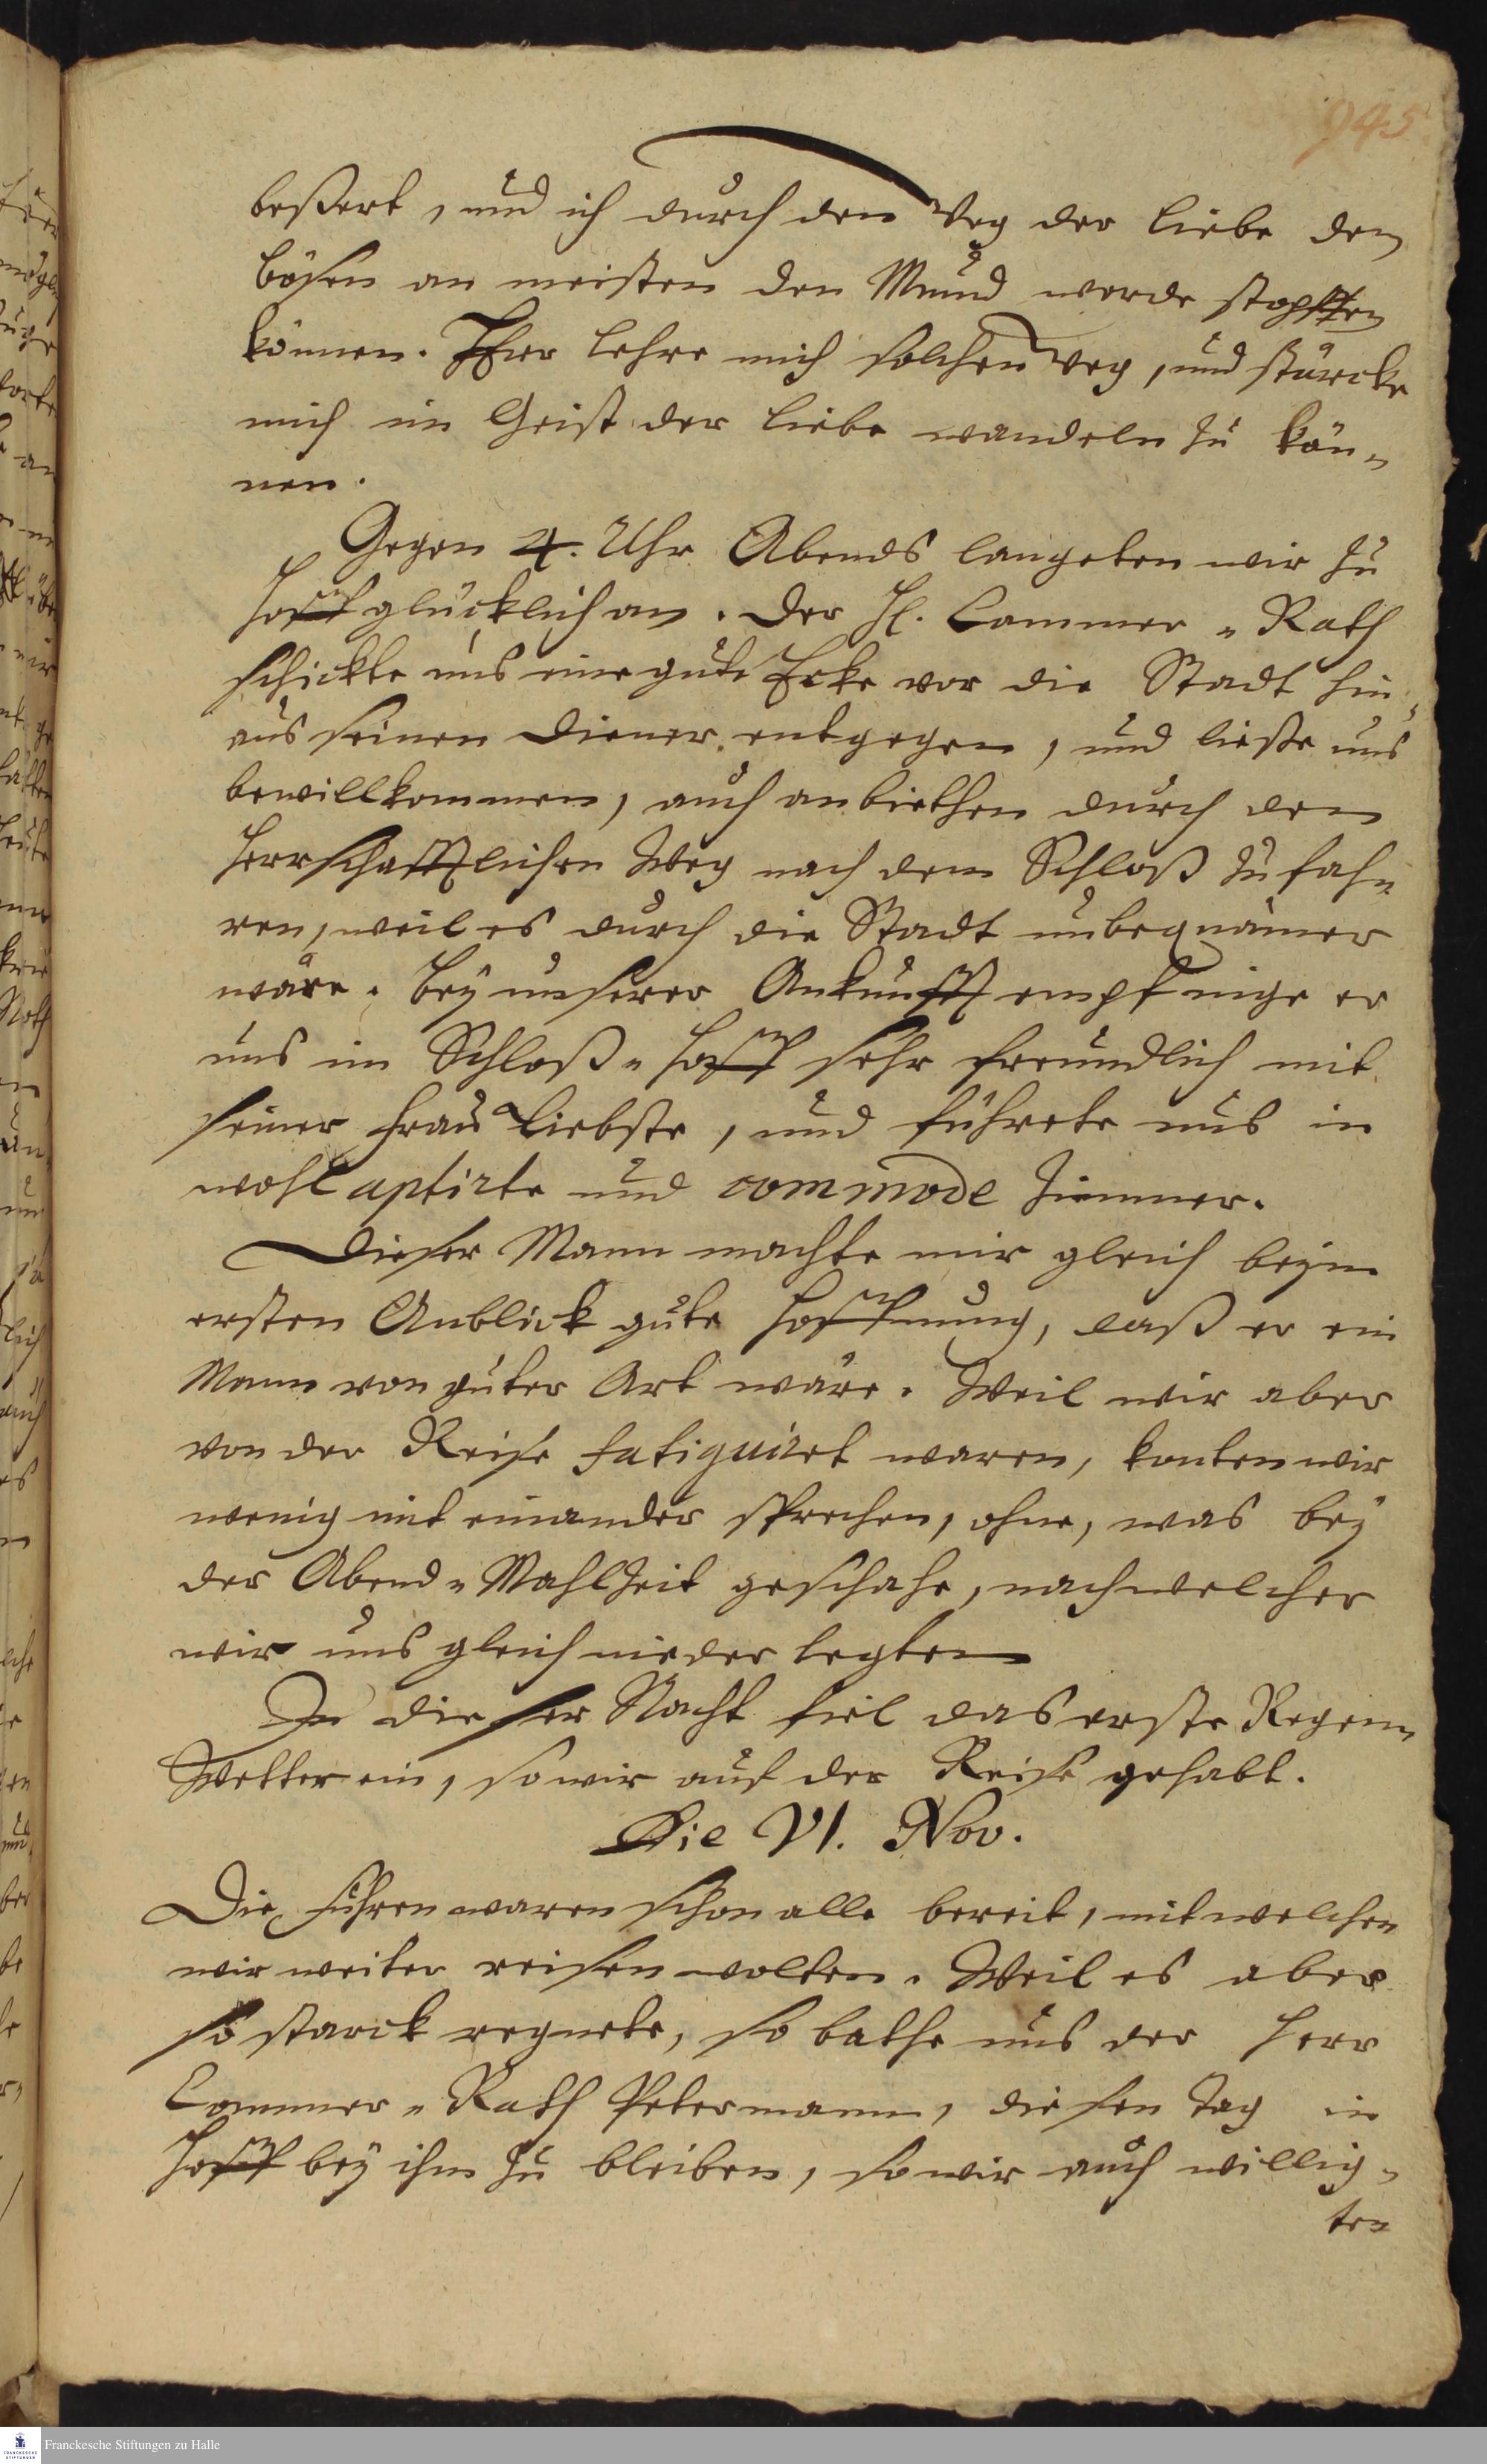 945
beßert, und ich durch den Weg der Liebe den
bösen am meisten den Mund werde stopffen
können. HErr lehre mich solchen Weg, und stärcke
mich im Geist der Liebe wandeln zu kön-
nen.
Gegen 4. Uhr Abends langeten wir zu
Hoff glücklich an. Der H. Cammer-Rath
schickte uns eine gute Ecke vor die Stadt hin-
aus seinen Diener entgegen, und ließe uns
bewillkommen, auch anbiethen durch den
Herrschafftlichen Weg nach dem Schloß zu fah-
ren, weil es durch die Stadt unbequämer
wäre. Bey unserer Ankunfft empfinge er
uns im Schloß-Hoff sehr freundlich mit
seiner Frau Liebste, und führete uns in
wohl aptirte und commode Zimmer.
Dieser Mann machte mir gleich beym
ersten Anblick gute Hoffnung, daß er ein
Mann von guter Art wäre. Weil wir aber
von der Reise fatiguiret waren, konten wir
wenig mit einander sprechen, ohne, was bey
der Abend-Mahlzeit geschahe, nach welcher
wir uns gleich nieder legten
In dieser Nacht fiel das erste Regen-
Wetter ein, so wir auf der Reise gehabt.
Die VI. Nov.
Die Fuhren waren schon alle bereit, mit welchen
wir weiter reisen wolten. Weil es aber
so starck regnete, so bathe uns der Herr
Cammer-Rath Petermann, diesen Tag in
Hoff bey ihm zu bleiben, so wir auch willig-
ten
Franckesche Stiftungen zu Halle